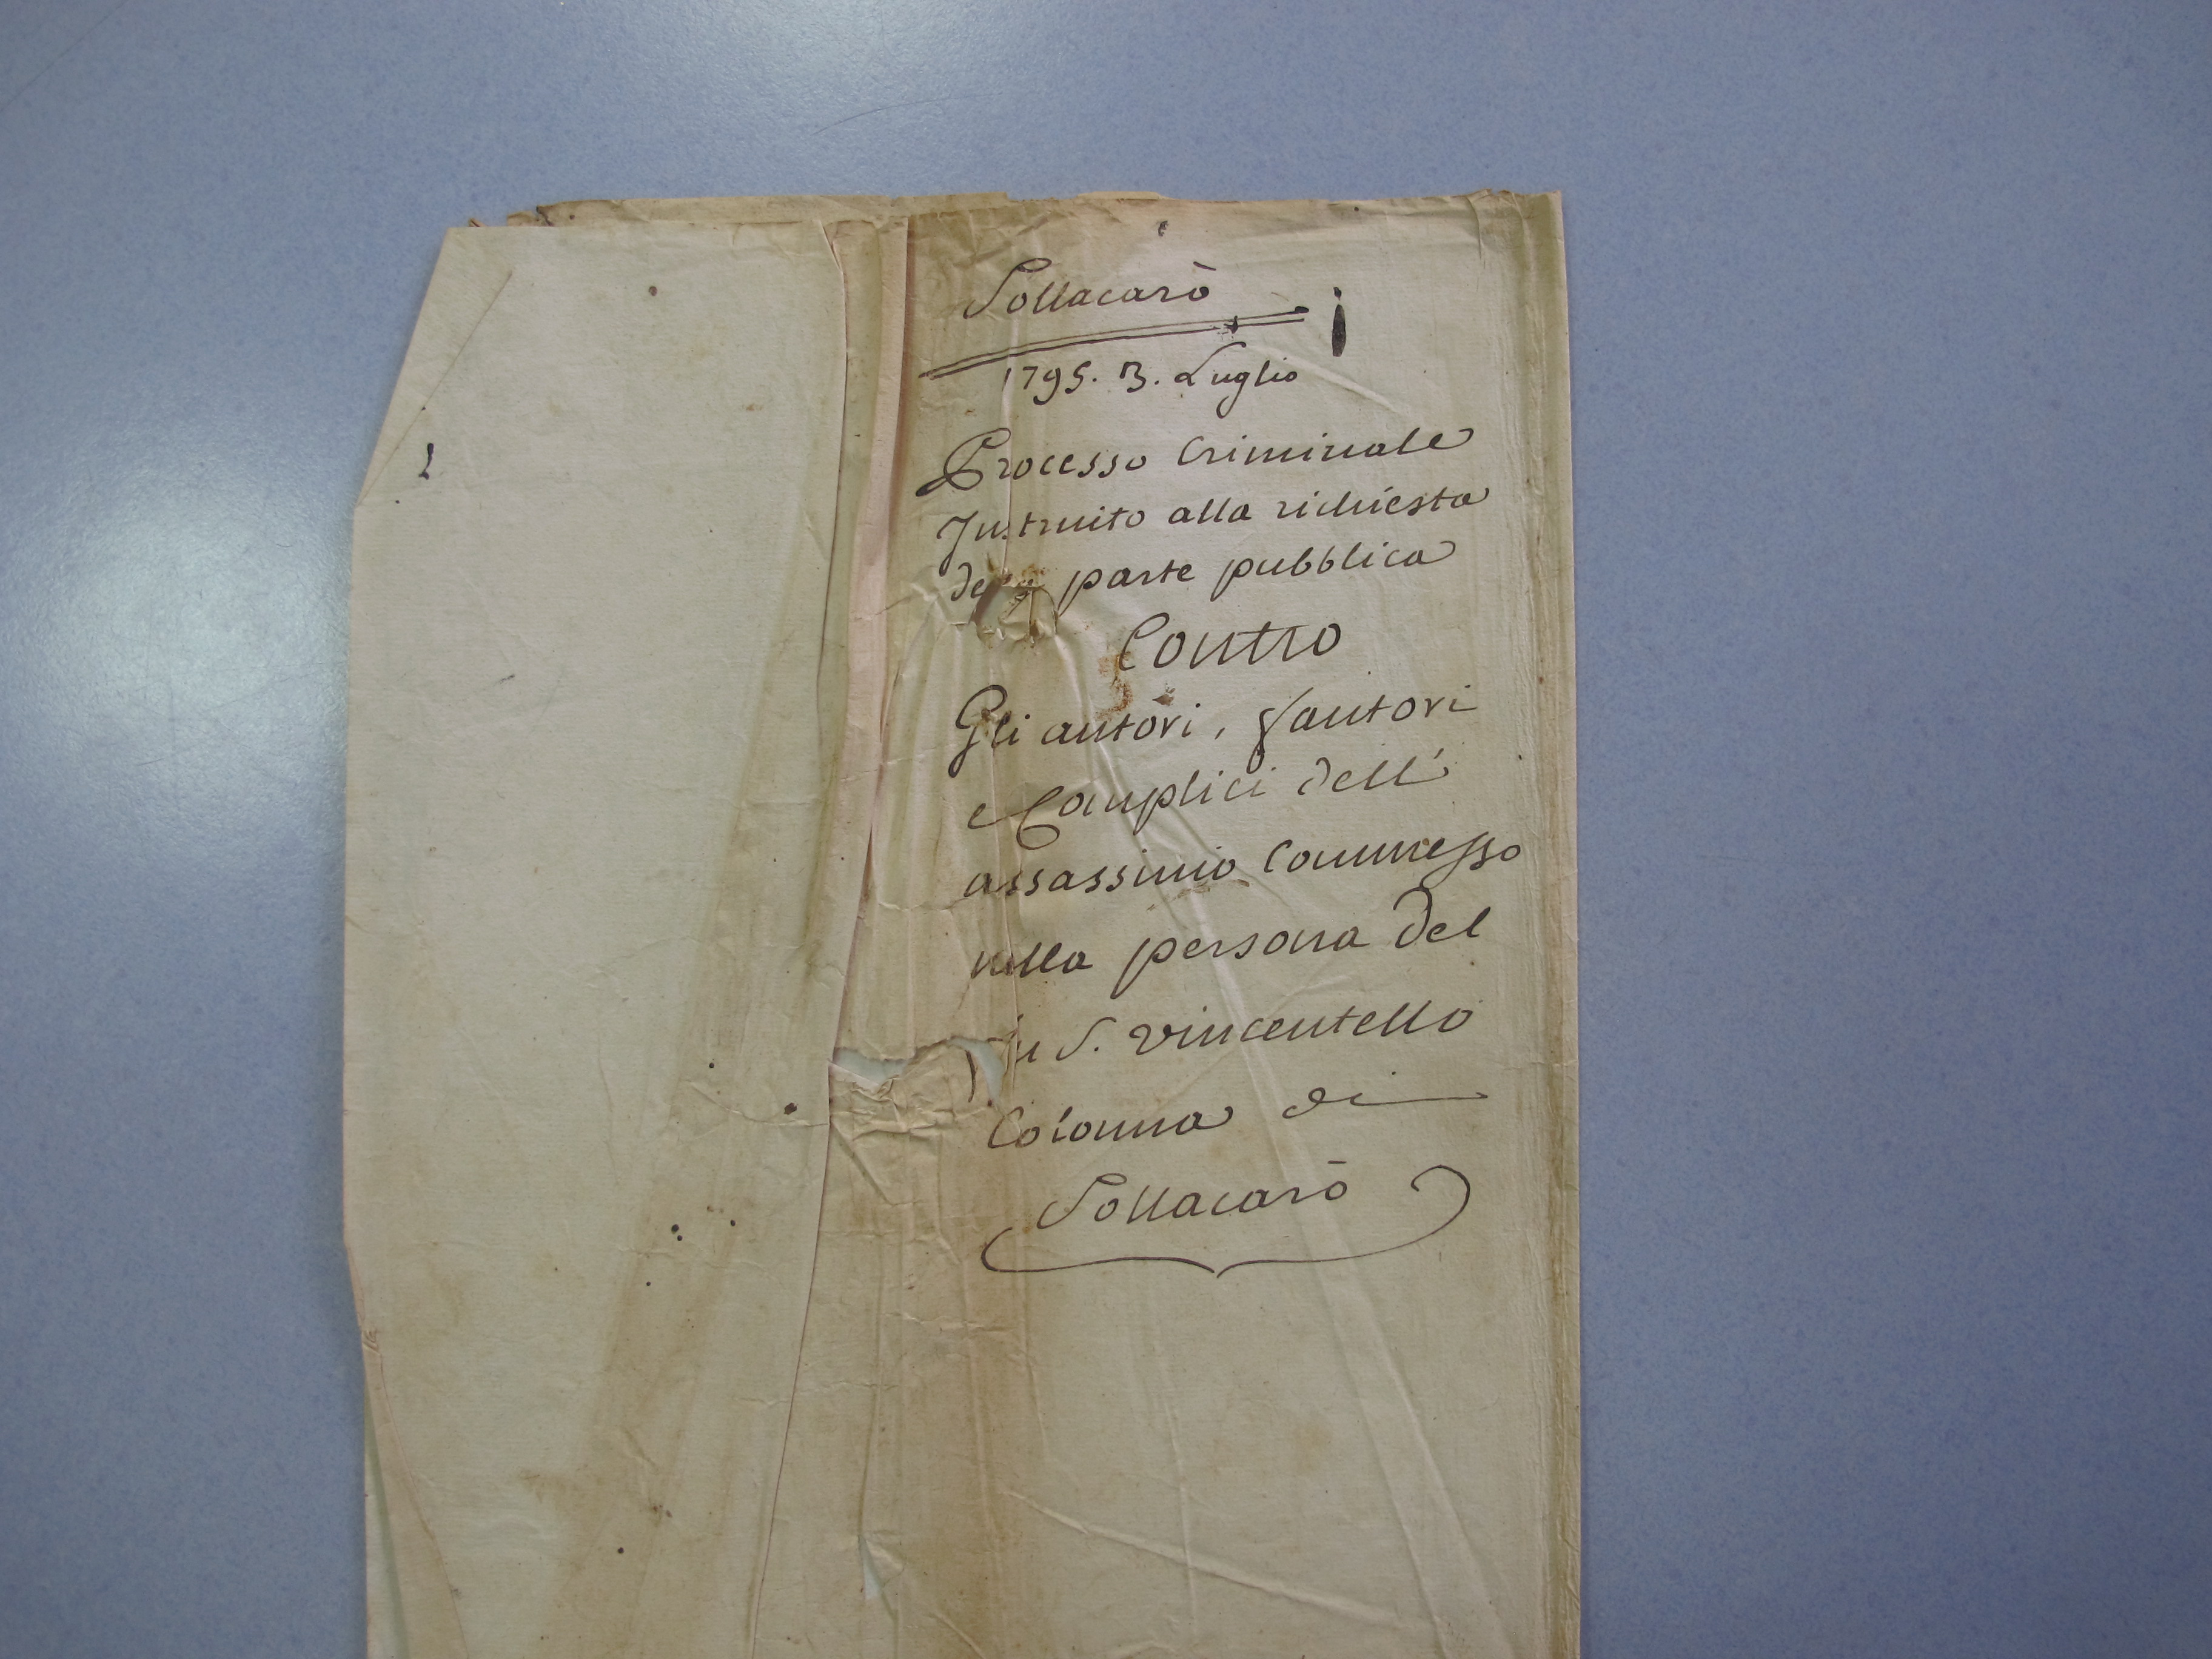 Sollacarò
1795. 3. Luglio
Processo Criminale
Instruito alla richiesta
parte pubblica
Contro
Gli autori, fautori
e Complici dell'
assassinio Commesso
nella persona del
S. Vincentello
Colonna di
Sollacarò